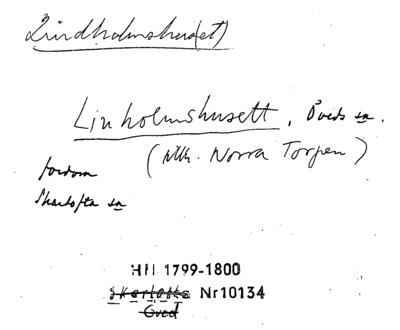 Lindholmshus(et)
Linholmshusett, Öveds sn.
(tillh. Norra Torpen)
fordom
Skartofta sn
Hfl 1799-1800
Skartofta Nr10134
Öved